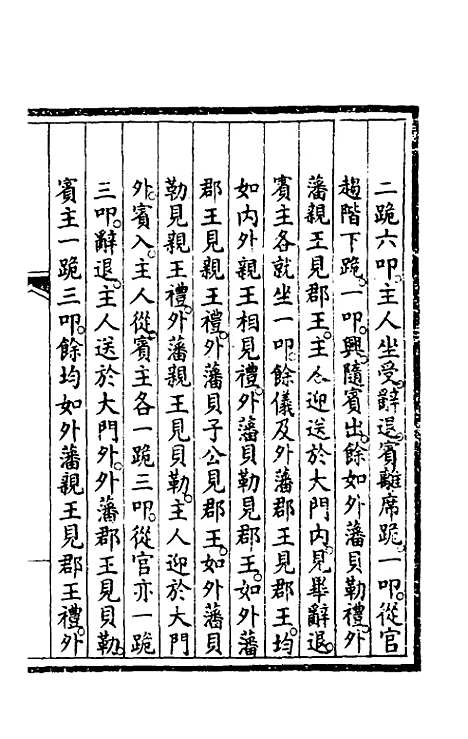 二跪六叩。主人坐受。辭退。賓離席跪。一叩。從官
趨階下跪。一叩。興。隨賓出。餘如外藩貝勒禮。外
藩親王見郡王。主人迎送於大門內。見畢辭退。
賓主各就坐一叩。餘儀及外藩郡王見郡王。均
如內外親王相見禮。外藩貝勒見郡王。如外藩
郡王見親王禮。外藩貝子公見郡王。如外藩貝
勒見親王禮。外藩親王見貝勒。主人迎於大門
外。賓入。主人從。賓主各一跪三叩。從官亦一跪
三叩。辭退。主人送於大門外。外藩郡王見貝勒。
賓主一跪三叩。餘均如外藩親王見郡王禮。外